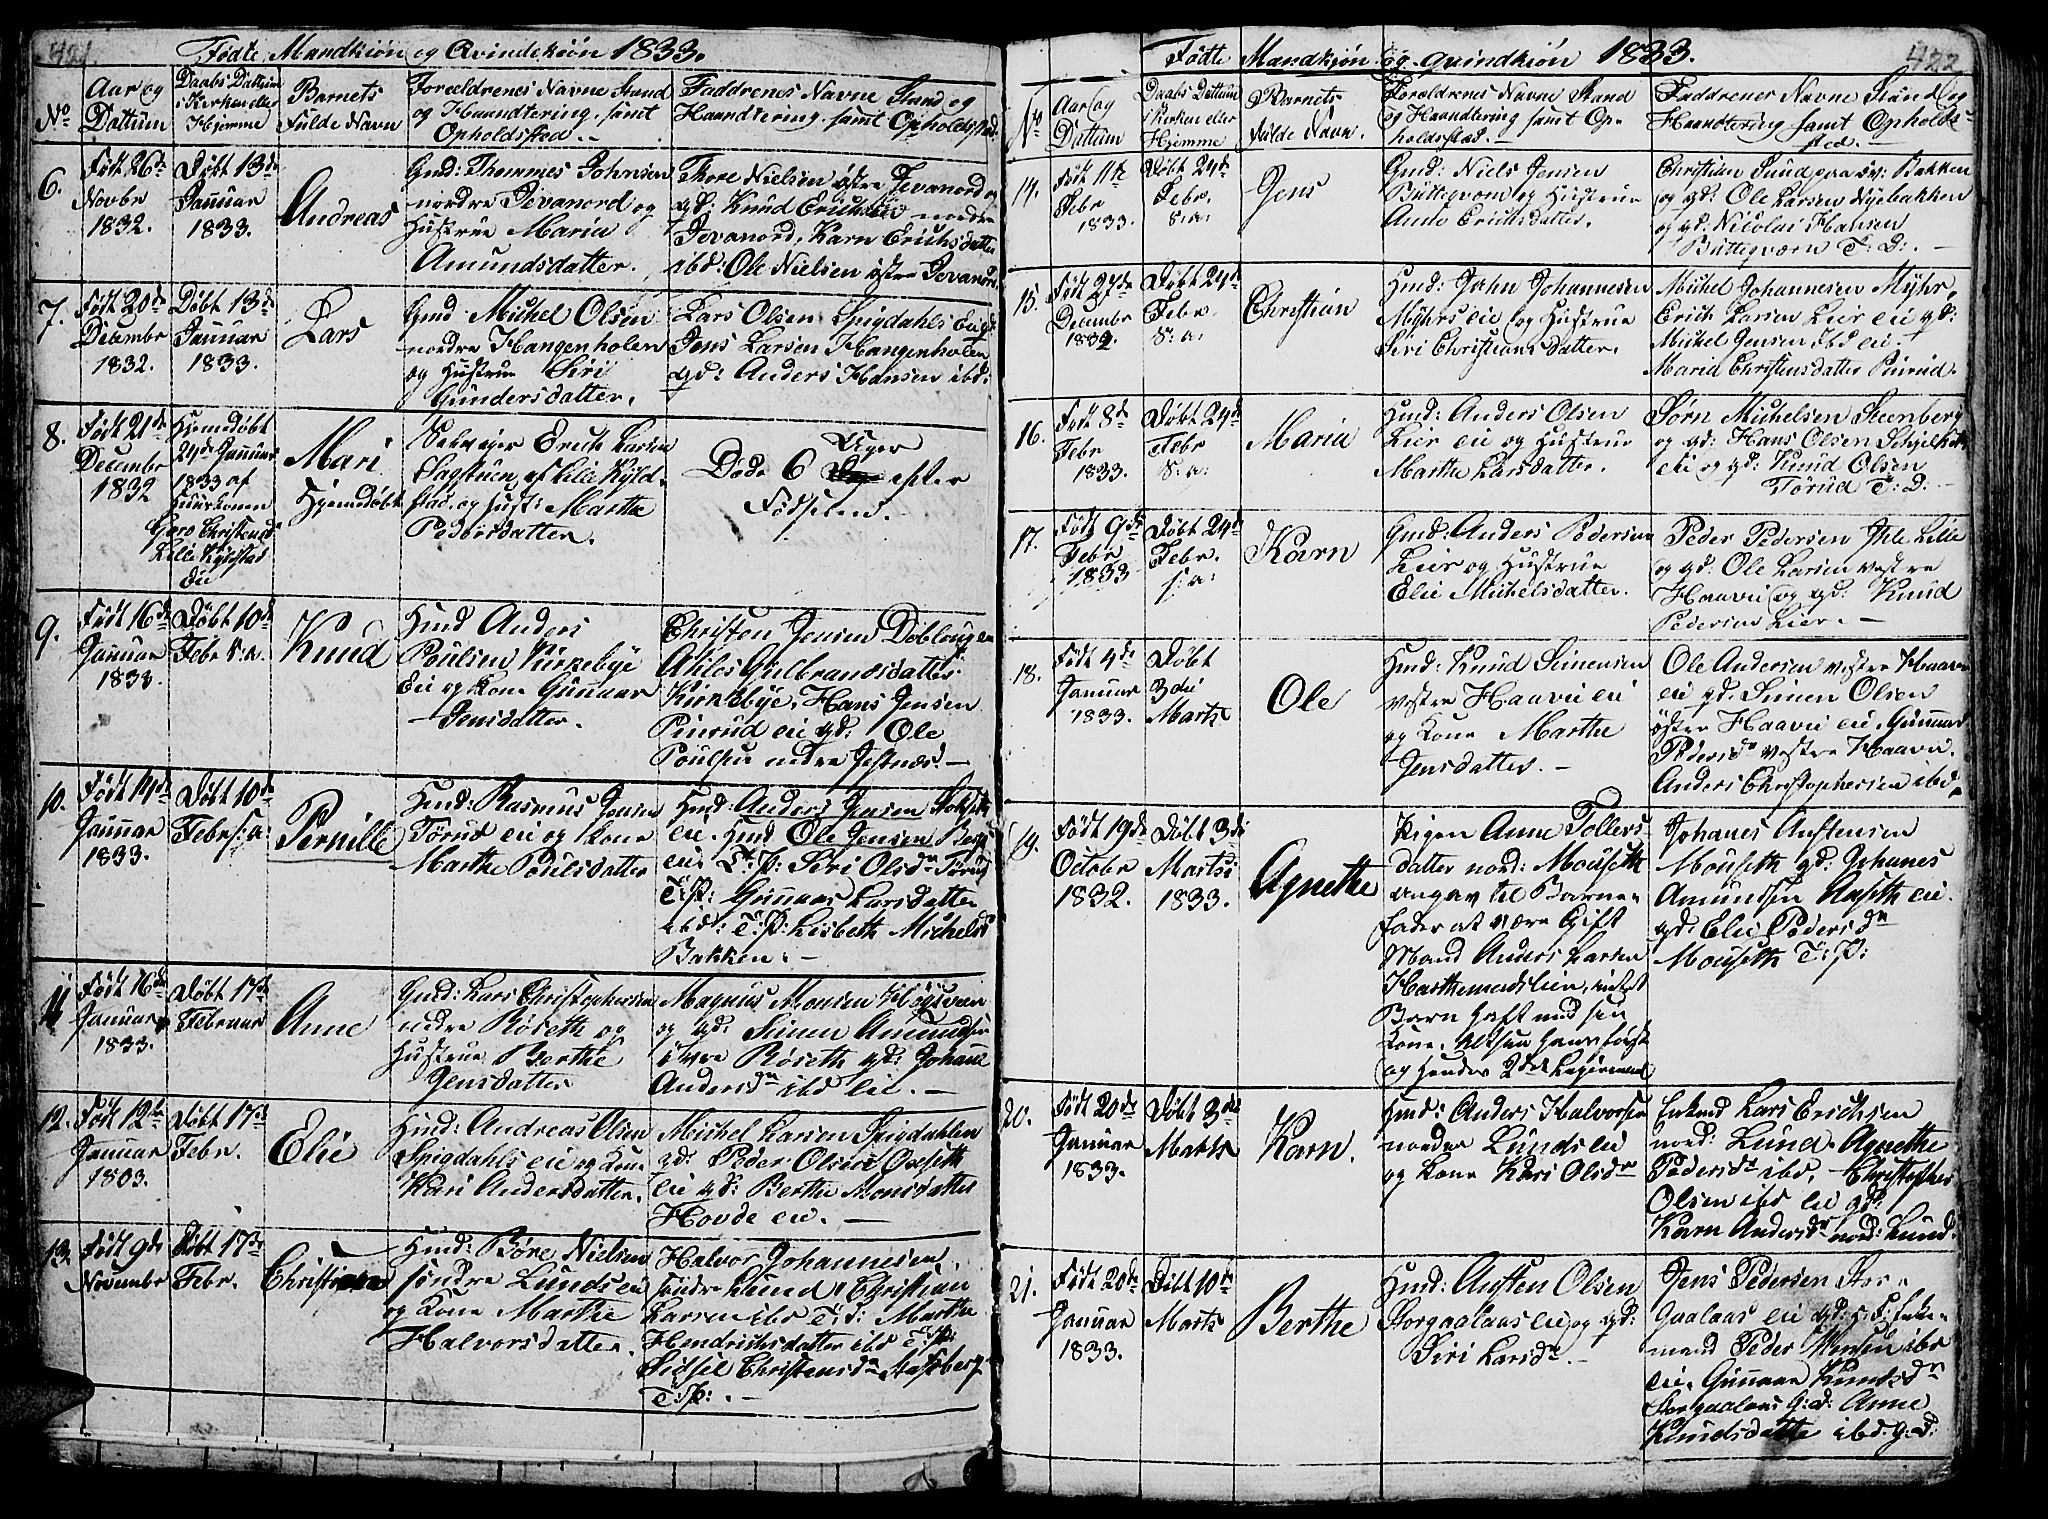 421.
Fødte Mandkiøn og Qvindekiøn 1833.
No
Aar og
Dattum
Daabs Dattum
i Kirken eller
Hjemme
Barnets
Fulde Navn
Foreldrenes Navne Stand
og Haandtering, samt
Opholdsted.-
Faddrenes Navne Stand og
Haandtering, samt Opholdsted.
6.
Født 26de
Novbr
1832.
Døbt 13de
Januar
1833.
Andreas
Gmd: Thommes Johnsen
nordre Jevanord og
Hustrue Maria
Amundsdatter.
Thore Nielsen østre Jevanord
gd: Knud Erichsen nordre
Jevanord, Karn Erichsdatter
ibd: Ole Nielsen østre Jevanord
7.
Født 20de
Decembr
1832.
Døbt 13de
Januar
1833.
Lars
Gmd Michel Olsen
nordre Hangenholen
og Hustrue Siri
Gundersdatter.
Lars Olsen Spigdahls Eie gd:
Jens Larsen Hangenholen
gd: Anders Hansen ibd:
8.
Født 21de
Decembr
1832
Hjemdøbt
24de Januar
1833 af
Huuskonen
Goro Christensd
Lille Kyldstad
Eie
Mari
Hjemdøbt
Erich Larsen
Sagstuen af Lille Kyld-
stad og Hust: Marthe
Pedersdatter.
Døde 6 Uger efter
Fødselen.
9.
Født 16de
Januar
1833.
Døbt 10de
Febr s.a.
Knud
Hmd Anders
Poulsen Kirkebye
Eie og Kone Gunnaar
Jensdatter.
Christen Jensen Doblougen
Ahles Gulbrandsdatter
Kirkebye, Hans Jensen
Pinrud eie gd: Ole
Poulsen nedre Jestnæs.-
10.
Født 14de
Januar
1833.
Døbt 10de
Febr s:a:
Pernille
Hmd: Rasmus Jensen
Torud eie og Kone
Marthe Poulsdatter
Hmd: Anders Jensen
eie. Hmd Ole Jensen Berg
eie, Siri Olsdr Torud
T:P: Gunnaar Larsdatter
ibd: T:P: Lisbeth Michelsd
Bakken.-
11
Født 16de
Januar
1833.
Døbt 17de
Februar
Anne
Gmd: Lars Christophersen
nedre Røseth og
Hustrue Berthe
Jensdatter
Magnus Monsen
og gd: Simen Amundsen
Røseth gd: Johane
Andersdr ibd eie.-
12.
Født 12te
Januar
1803.
Døbt 17de
Febr.
Elie
Hmd: Andreas Olsen
Spigdahls eie og Kone
Kari Andersdatter.
Michel Larsen Spigdahlen
gd: Peder Olsen
eie gd: Berthe Monsdatter
Hovde eie.-
13.
Født 9de
Novembr
Døbt 17de
Febr.
Hmd: Børe Nielsen
søndre Lunds eie
og Kone Marthe
Halvorsdatter.
Halvor Johannesen
søndre Lund, Christian
Larsen ibd T:d: Marthe
Hendrichsdatter ibd T:P:
Sidsel Christensdr
T:P:.-
422
Fødte Mandkjøn og Qvindkiøn 1833.
No
Aar og
Dattum
Daabs Dattum
i Kirken eller
Hjemme
Barnets
fulde Navn.
Foreldrenes Navne Stand
og Haandtering samt Op-
holdssted.-
Faddrenes Navne Stand og
Haandtering samt Opholds-
sted.-
14.
Født 11te
Febr
1833.
Døbt 24de
Febr.
s:a:
Jens
Gmd: Niels Jensen
Buttegvern og Hustrue
Anne Erichsdatter.
Christian Lund paa Bakken
og gd: Ole Larsen Nyebakken
og gd. Nicolai Hansen
Buttegværn T:D:.-
15.
Født 27de
Decembr
1832.
Døbt 24de
Febr.
s:a:
Christian
Hmd: John Johannesen
Myhrs eie og Hustrue
Siri Christiansdatter.
Michel Johannesen Myhr,
Erich Larsen Lier eie gd:
Michel Jensen ibd eie.
Maria Christensdatter Pinrud.
16.
Født 8de
Febr
1833.
Døbt 24de
Febr
s:a:
Maria
Hmd: Anders Olsen
Lier eie og Hustrue
Marthe Larsdatter.
Sørn Michelsen Steenberg
og gd: Hans Olsen
eie og gd: Knud Olsen
Torud T:D:-
17.
Født 9de
Febr
1833
Døbt 24de
Febr.
s:a:
Karn
Gmd: Anders Pedersen
Lier og Hustrue
Elie Michelsdatter.
Peder Pedersen Ihle Lille
og gd: Ole Larsen vestre
Haavie og gd: Knud
Pedersen Lier.-
18.
Født 4de
Januar
1833.
Døbt
3die
Marts
Ole
Hmd: Knud Simensen
vestre Haavie eie
og Kone Marthe
Jensdatter.-
Ole Andersen vestre Haavie
eie gd. Simen Olsen
østre Haavie eie, Gunnaar
Pedersdr vestre Haavie.
Anders Christophersen ibd.
19.
Født 19de
Octobr
1832.
Døbt 3die
Marts
1833.
Agnethe
Pigen Anne Tollers-
datter nord: Mouseth
angav til Barne-
fader at være Gift
Mand Anders Larsen
Barn haft med sin
Kone, Altsaa Hans første
og Hendes 2det Leiermaal
Johanes Austensen
Mouseth gd: Johanes
Amundsen Aaseth eie.
gd: Elie Pedersdr
Mouseth T:P:
20.
Født 20de
Januar
1833.
Døbt 3die
Marts
Karn.
Hmd: Anders Halvorsen
norder Lunds eie
og Kone Kari Olsdr
Enkemd Lars Erichsen
nord: Lund. Agnethe
Pedersdr ibd,- Christopher
Olsen ibd eie gd:
Karn Andersdr nord: Lund.
21.
Født 20de
Januar
1833.
Døbt 10de
Marts
Berthe
Hmd: Austen Olsen
Storgaalaas eie og gd:
Siri Larsdr.-
Jens Pedersen Stor-
gaalaas eie gd: Enke-
mand Peder ibd
eie, Gunnaar Knudsdr
Storgaalaas G:d: Anne
Knudsdatter ibd. g:d: